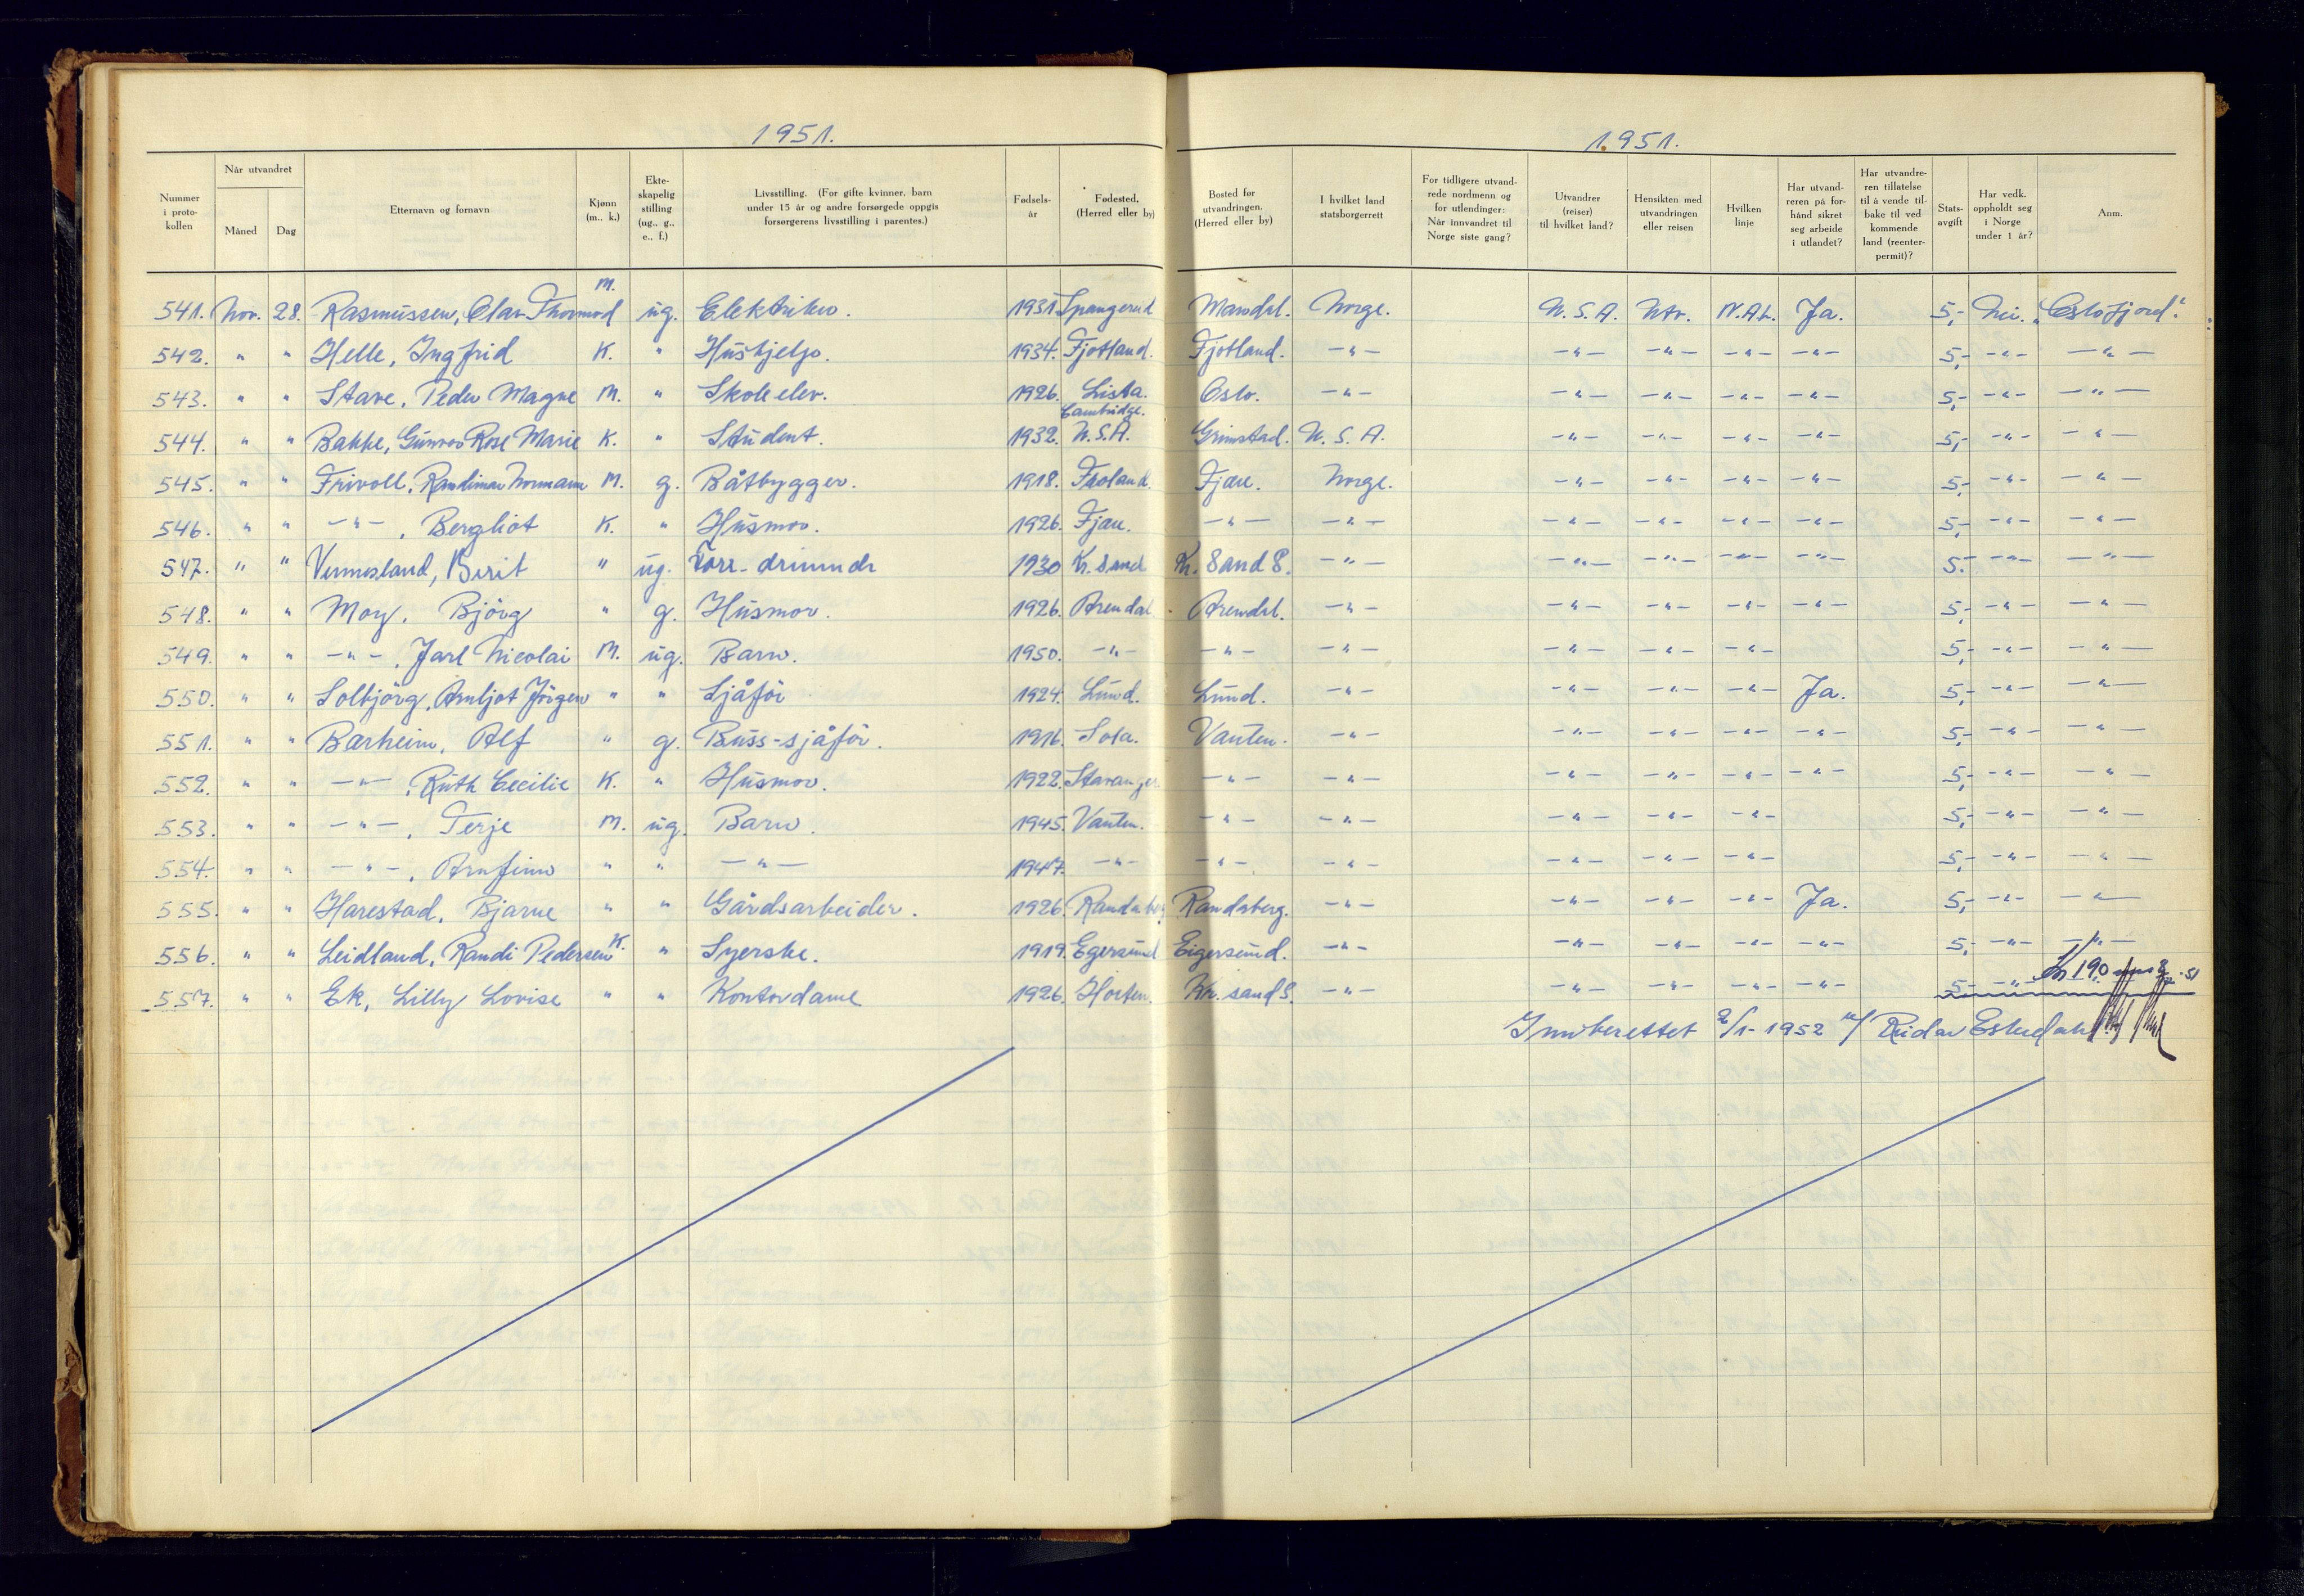 1951.
1951.
Nummer i proto-kollen | Når utvandret | Måned | Dag | Etternavn og fornavn | Kjønn (m., k.) | Ekte-skapelig stilling (ug., g., e., f.) | Livsstilling. (For gifte kvinner, barn under 15 år og andre forsørgede oppgis forsørgerens livsstilling i parentes.) | Fødsels-år | Fødested. (Herred eller by) | Bosted før utvandringen. (Herred eller by) | I hvilket land statsborgerrett | For tidligere utvand-rede nordmenn og for utlendinger: Når innvandret til Norge siste gang? | Utvandrer (reiser) til hvilket land? | Hensikten med utvandringen eller reisen | Hvilken linje | Har utvand-reren på for-hånd sikret seg arbeide i utlandet? | Har utvandre-ren tillatelse til å vende til-bake til ved kommende land (reenter-permit)? | Stats-avgift | Har vedk. oppholdt seg i Norge under 1 år? | Anm.
541. Nov. 28. Rasmussen, Olav Thormod m. ug. Elektriker. 1931 Spangereid Mandal. Norge. U.S.A. Utv. N.A.L. Ja. 5,- Nei. "Oslofjord".
542. " " Helle, Ingfrid K. " Hushjelp. 1934. Fjotland. Fjotland. -"- -"- -"- -"- -"- 5,- -"- -"-
543. " " Stave, Peder Magne M. " Skoleelev. 1926. Lista. Oslo. -"- -"- -"- -"- -"- 5,- -"- -"-
544. " " Bakke, Gunvor Rose Marie K. " Student. 1932. Cambridge. U.S.A. Grimstad. U.S.A. -"- -"- -"- -"- 5,- -"- -"-
545. " " Frivoll, Randimar Normann M. g. Båtbygger. 1918. Froland. Fjære. Norge. -"- -"- -"- -"- 5,- -"- -"-
546. " " -"-, Bergliot K. " Husmor. 1926. Fjære. -"- -"- -"- -"- -"- -"- 5,- -"- -"-
547. " " Vennesland, Berit " ug. 1930 Kr.sand Kr.sand S. -"- -"- -"- -"- -"- 5.- -"- -"-
548. " " Moy, Bjørg " g. Husmor. 1926. Arendal Arendal. -"- -"- -"- -"- -"- 5,- -"- -"-
549. " " -"-, Jarl Nicolai M. ug. Barn. 1950. -"- -"- -"- -"- -"- -"- 5,- -"- -"-
550. " " Solbjørg, Arnljot Jørgen " " Sjåfør 1924. Lund. Lund. -"- -"- -"- -"- Ja. 5,- -"- -"-
551. " " Barheim, Alf " g. Buss-sjåfør. 1916. Sola. Vanten. -"- -"- -"- -"- -"- 5,- -"- -"-
552. " " -"-, Ruth Cecilie K. " Husmor. 1922. Stavanger -"- -"- -"- -"- -"- -"- 5,- -"- -"-
553. " " -"-, Terje M. ug. Barn. 1945. Vanten. -"- -"- -"- -"- -"- 5,- -"- -"-
554. " " -"-, Arnfinn " " -"- 1947. -"- -"- -"- -"- -"- -"- 5,- -"- -"-
555. " " Harestad, Bjarne " " Gårdsarbeider. 1926. Randaberg Randaberg. -"- -"- -"- -"- Ja. 5,- -"- -"-
556. " " Leidland, Randi Pedersen K. " Syerske. 1919. Egersund Eigersund. -"- -"- -"- -"- -"- 5,- -"- -"-
557. " " Ek, Lilly Lovise " " Kontordame 1926. Horten. Kr.sand S. -"- -"- -"- -"- -"- 5,- -"- Kr 190
Innberettet 2/1-1952 Reidar